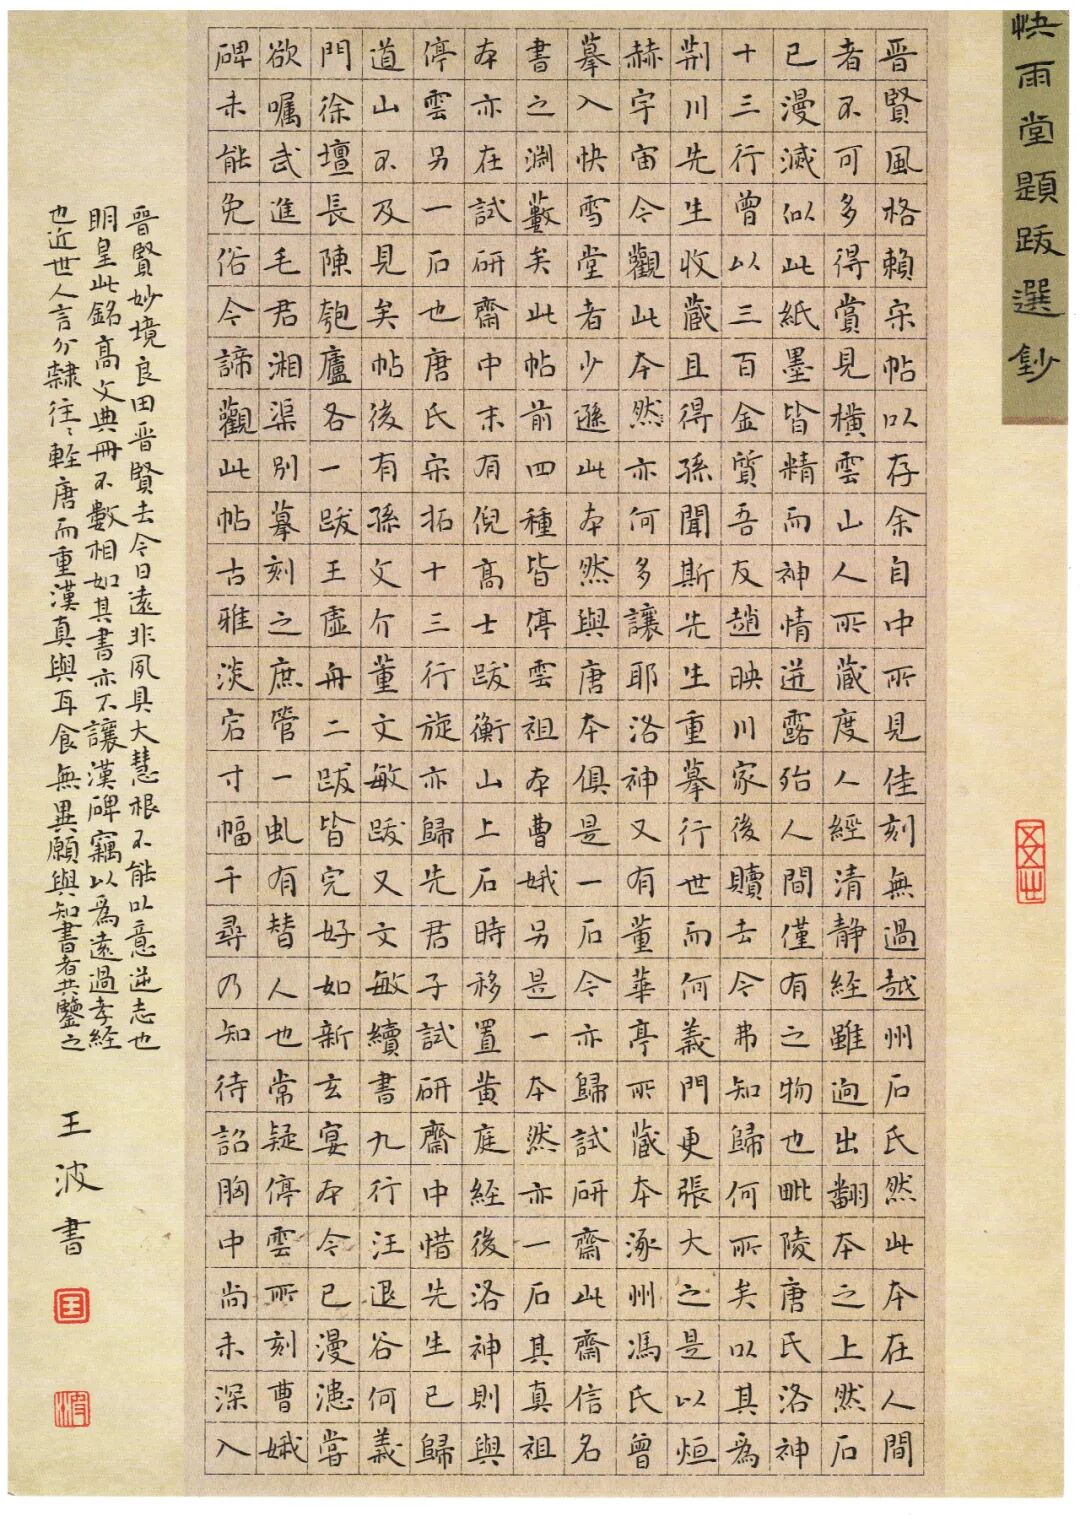 快雨堂題跋選鈔
晋賢風格賴宋帖以存余自中所見佳刻無過越州石氏然此本在人間
者不可多得賞見橫雲山人所藏度人經清靜經雖迥出翻本之上然石
已漫滅似此紙墨皆精而神情迸露殆人間僅有之物也毗陵唐氏洛神
十三行曾以三百金質吾友趙映川家後贖去今弗知歸何所矣以其為
荆川先生收藏且得孫聞斯先生重摹行世而何義門更張大之是以烜
赫宇宙今觀此本然亦何多讓耶洛神又有董華亭所藏本涿州馮氏曾
摹入快雪堂者少遜此本然與唐本俱是一石今亦歸試研齋此齋信名
書之渊藪矣此帖前四種皆停雲祖本曹娥另是一本然亦一石其真祖
本亦在試研齋中末有倪高士跋衡山上石時移置黄庭經後洛神則與
停雲另一石也唐氏宋拓十三行旋亦歸先君子試研齋中惜先生已歸
道山不及見矣帖後有孫文介董文敏跋又文敏續書九行汪退谷何義
門徐壇長陳匏廬各一跋王虛舟二跋皆完好如新玄宴本今已漫漶嘗
欲囑武進毛君湘渠別摹刻之庶管一虬有替人也常疑停雲所刻曹娥
碑未能免俗今諦觀此帖古雅淡宕寸幅千尋乃知待詔胸中尚未深入
晉賢妙境良田晋賢去今日遠非夙具大慧根不能以意逆志也
明皇此銘高文典冊不數相如其書亦不讓漢碑竊以為遠過孝經
也近世人言分隸往往輕唐而重漢真與耳食無異願與知書者共鑒之
王波書
王
波